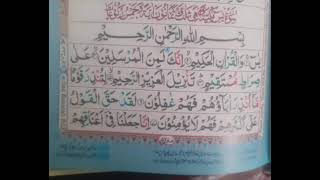 بِسْمِ اللّٰهِ الرَّحْمٰنِ الرَّحِيْمِ
يٰسٓ ۚ وَ الْقُرْاٰنِ الْحَكِيْمِ ۙ اِنَّكَ لَمِنَ الْمُرْسَلِيْنَ ۙ عَلٰى
صِرَاطٍ مُّسْتَقِيْمٍ ؕ تَنْزِيْلَ الْعَزِيْزِ الرَّحِيْمِ ۙ لِتُنْذِرَ قَوْمًا
مَّاۤ اُنْذِرَ اٰبَآؤُهُمْ فَهُمْ غٰفِلُوْنَ لَقَدْ حَقَّ الْقَوْلُ
عَلٰۤى اَكْثَرِهِمْ فَهُمْ لَا يُؤْمِنُوْنَ اِنَّا جَعَلْنَا فِيْۤ اَعْنَاقِهِمْ